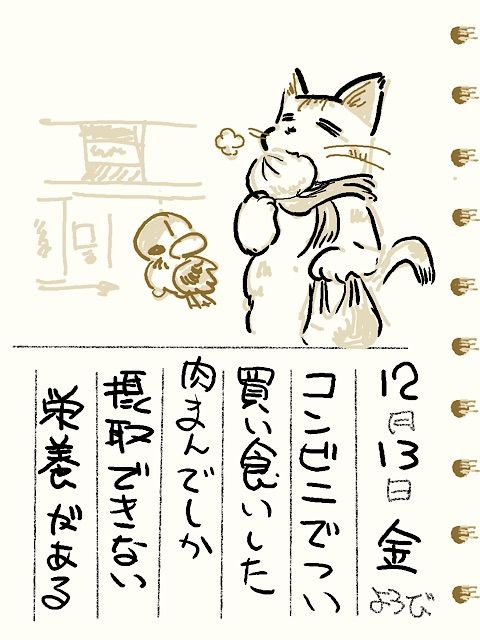 12月13日 金よろび
コンビニでつい
買い食いした
肉まんでしか
摂取できない
栄養がある